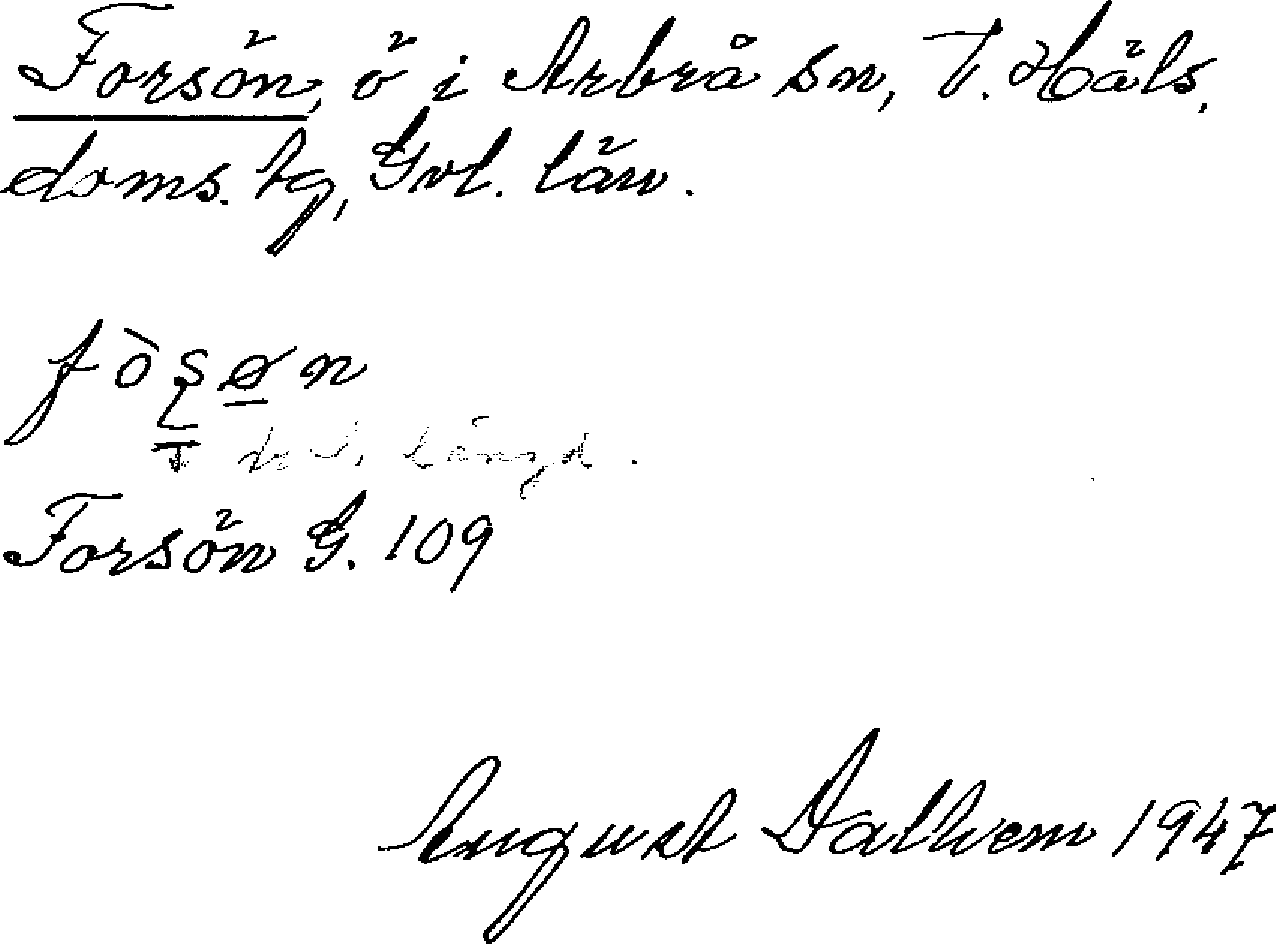 Forsön, ö i Arbrå sn, V. Häls.
doms. tg, Gvl. län.
fòʂøn
längd.
Forsön G. 109
August Dalhem 1947